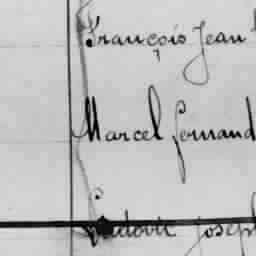 François Jean
Marcel Fernand
Ludovic Joseph